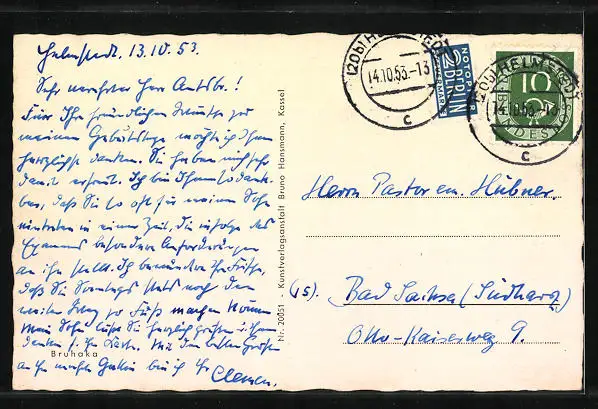 Helmstedt, 13.10.53.
Sehr verehrter Herr Amtsbr.!
Für Ihre freundlichen Wünsche zu
meinem Geburtstage möchte ich Ihnen
herzlichst danken. Sie haben mich sehr
damit erfreut. Ich bin Ihnen so dank-
bar, daß Sie so oft für meinen Sohn
eintreten in einer Zeit, die infolge des
Examens besondere Anforderungen
an ihn stellt. Ich bewundere Ihre Frische,
daß Sie Sonntags stets noch den
weiten Weg zu Fuß machen können
Mein Sohn läßt Sie herzlich grüßen u. Ihnen
danken f. Ihre Karte. Mit den besten Grüßen
an Ihre Gattin bin ich Ihr
Clemen.
Bruhaka
Nr. 20051 - Kunstverlagsanstalt Bruno Hansmann, Kassel
(20b) HELMSTEDT
14.10.53.-13
c
NOTOPFER
2
BERLIN
STEUERMARKE
(20b) HELMSTEDT
14.10.53.-13
c
10
BUNDESPOST
Herrn Pastor em. Hübner.
(15). Bad Sachsa (Südharz)
Otto-Kaiserweg 9.